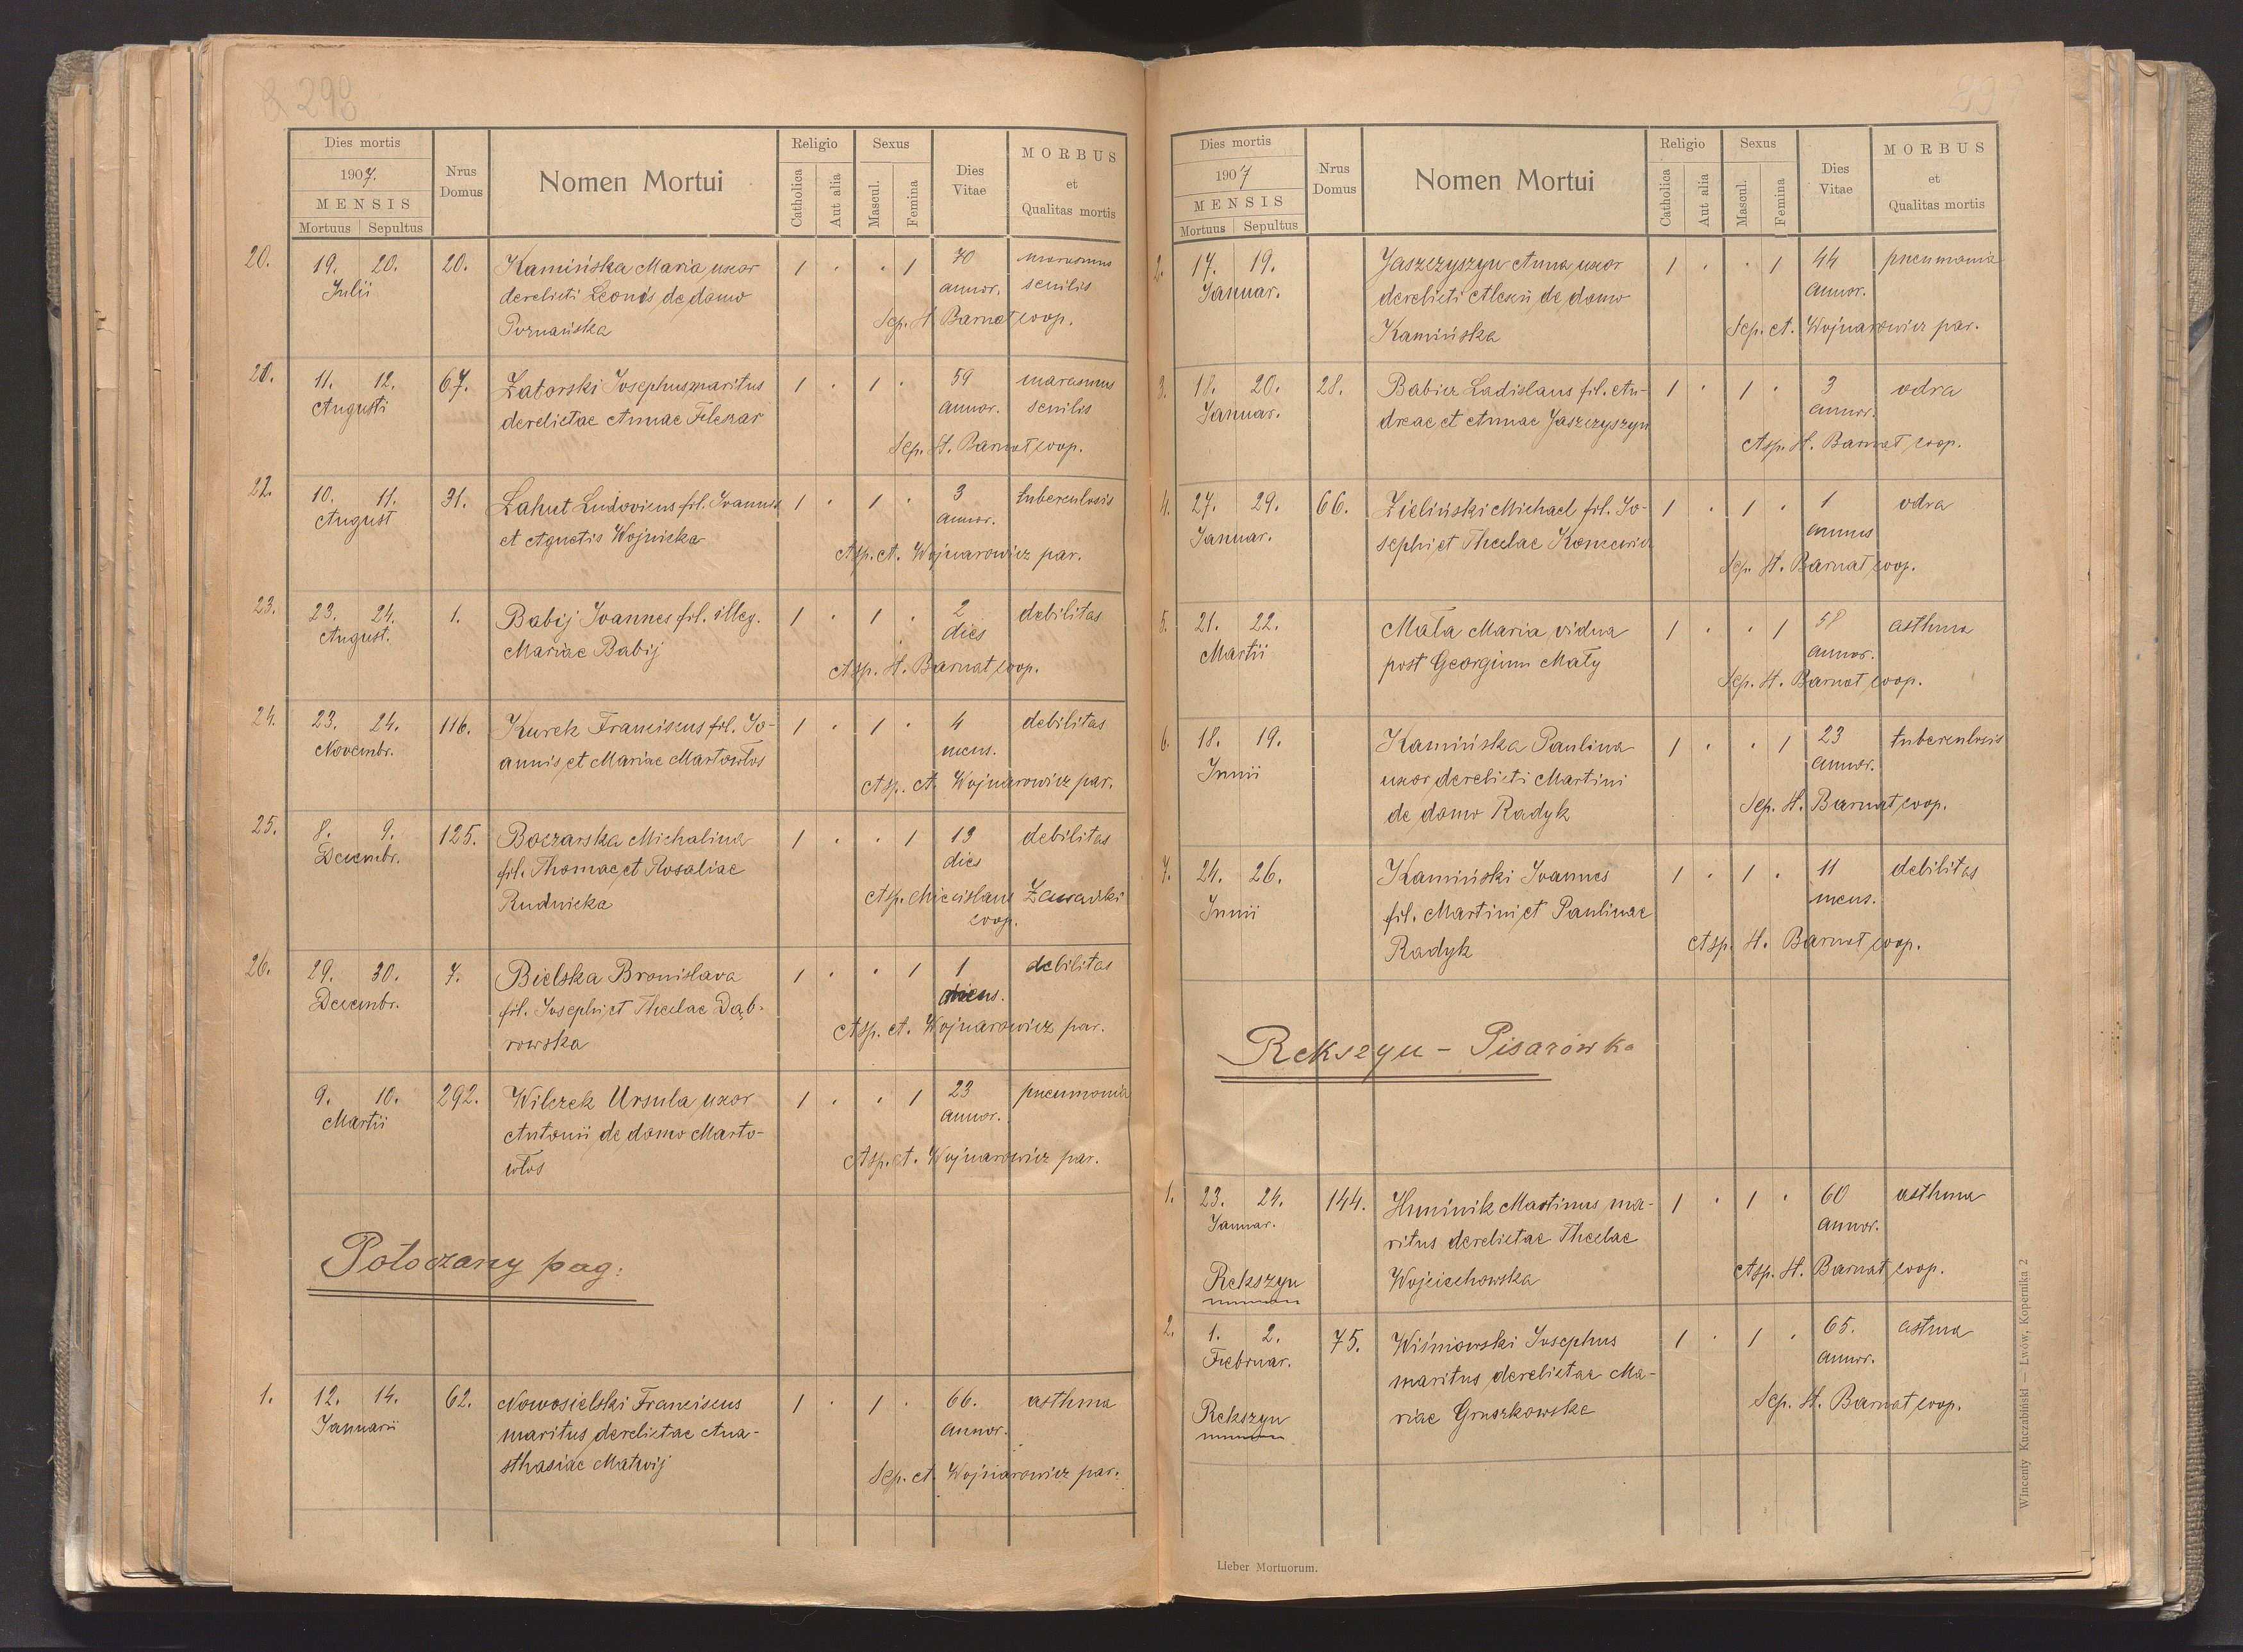 290
Dies mortis
1907.
MENSIS
Mortuus Sepultus
Nrus Domus
Nomen Mortui
Religio
Catholica
Aut alia
Sexus
Mascul.
Femina
Dies Vitae
MORBUS
et
Qualitas mortis
20. 19. 20. 20. Kamińska Maria uxor 1 . . 1 70 marasmus
Julii derelicti Leonis de domo annor. senilis
Poznańska Sep. H. Barnat coop.
21. 11. 12. 67. Zatorski Josephus maritus 1 . 1 . 59 marasmus
Augusti derelictae Annae Felczar annor. senilis
Sep. H. Barnat coop.
22. 10. 11. 31. Lahut Ludovicus fil. Joannis 1 . 1 . 3 tuberculosis
August et Agnetis Wojnicka annor.
Asp. A. Wojnarowicz par.
23. 23. 24. 1. Babij Joannes fil. illeg. 1 . 1 . 2 debilitas
August. Mariae Babij dies
Asp. H. Barnat coop.
24. 23. 24. 116. Kurek Franciscus fil. Jo- 1 . 1 . 4 debilitas
Novembr. annis et Mariae Martowłos mens.
Asp. A. Wojnarowicz par.
25. 8. 9. 125. Boczarska Michalina 1 . . 1 13 debilitas
Decembr. fil. Thomae et Rosaliae dies
Rudnicka Asp. Miecislaus Zawadzki
coop.
26. 29. 30. 7. Bielska Bronislava 1 . . 1 1 debilitas
Decembr. fil. Josephi et Theclae Dąb- mens.
rowska Asp. A. Wojnarowicz par.
9. 10. 292. Wilczek Ursula uxor 1 . . 1 23 pneumonia
Martii Antonii de domo Marto- annor.
włos Asp. A. Wojnarowicz par.
Potoczany pag:
1. 12. 14. 62. Nowosielski Franciscus 1 . 1 . 66. asthma
Januarii maritus derelictae Ana- annor.
sthasiae Matwij Sep. A. Wojnarowicz par.
Dies mortis
1907
MENSIS
Mortuus Sepultus
Nrus Domus
Nomen Mortui
Religio
Catholica
Aut alia
Sexus
Mascul.
Femina
Dies Vitae
MORBUS
et
Qualitas mortis
2. 17. 19. Jaszczyszyn Anna uxor 1 . . 1 44 pneumonia
Januar. derelicti Alexii de domo annor.
Kamińska Sep. A. Wojnarowicz par.
3. 18. 20. 28. Babicz Ladislaus fil. An- 1 . 1 . 3 odra
Januar. dreae et Annae Jaszczyszyn annor.
Asp. H. Barnat coop.
4. 27. 29. 66. Zieliński Michael fil. Jo- 1 . 1 . 1 odra
Januar. sephi et Theclae annus
Sep. H. Barnat coop.
5. 21. 22. Mała Maria vidua 1 . . 1 58 asthma
Martii post Georgium Mały annor.
Sep. H. Barnat coop.
6. 18. 19. Kamińska Paulina 1 . . 1 23 tuberculosis
Junii uxor derelicti Martini annor.
de domo Radyk Sep. H. Barnat coop.
7. 24. 26. Kamiński Joannes 1 . 1 . 11 debilitas
Junii fil. Martini et Paulinae mens.
Radyk Asp. H. Barnat coop.
Rekszyn - Pisarówka
1. 23. 24. 144. Huminik Martinus ma- 1 . 1 . 60 asthma
Januar. ritus derelictae Theclae annor.
Rekszyn Wojciechowska Asp. H. Barnat coop.
2. 1. 2. 75. Wiśniowski Josephus 1 . 1 . 65. astma
Februar. maritus derelictae Ma- annor.
Rekszyn riae Gruszkowske Sep. H. Barnat coop.
Lieber Mortuorum.
Wincenty Kuczabiński — Lwów, Kopernika 2